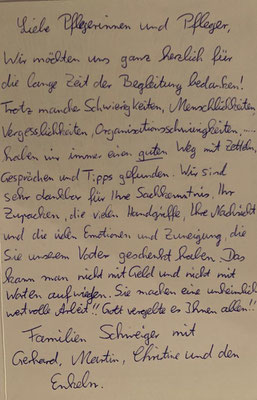 Liebe Pflegerinnen und Pfleger,
Wir möchten uns ganz herzlich für
die lange Zeit der Begleitung bedanken!
Trotz manche Schwierigkeiten, Menschlichkeiten,
Vergesslichkeiten, Organisationsschwierigkeiten, ....
haben wir immer einen guten Weg mit Zetteln,
Gesprächen und Tipps gefunden. Wir sind
sehr dankbar für Ihre Sachkenntnis, Ihr
Zupacken, die vielen Handgriffe, Ihre Nachsicht
und die vielen Emotionen und Zuneigung, die
Sie unserem Vater geschenkt haben. Das
kann man nicht mit Geld und nicht mit
Worten aufwiegen. Sie machen eine unheimlich
wertvolle Arbeit!! Gott vergelte es Ihnen allen!!
Familien Schweiger mit
Gerhard, Martin, Christine und den
Enkeln.